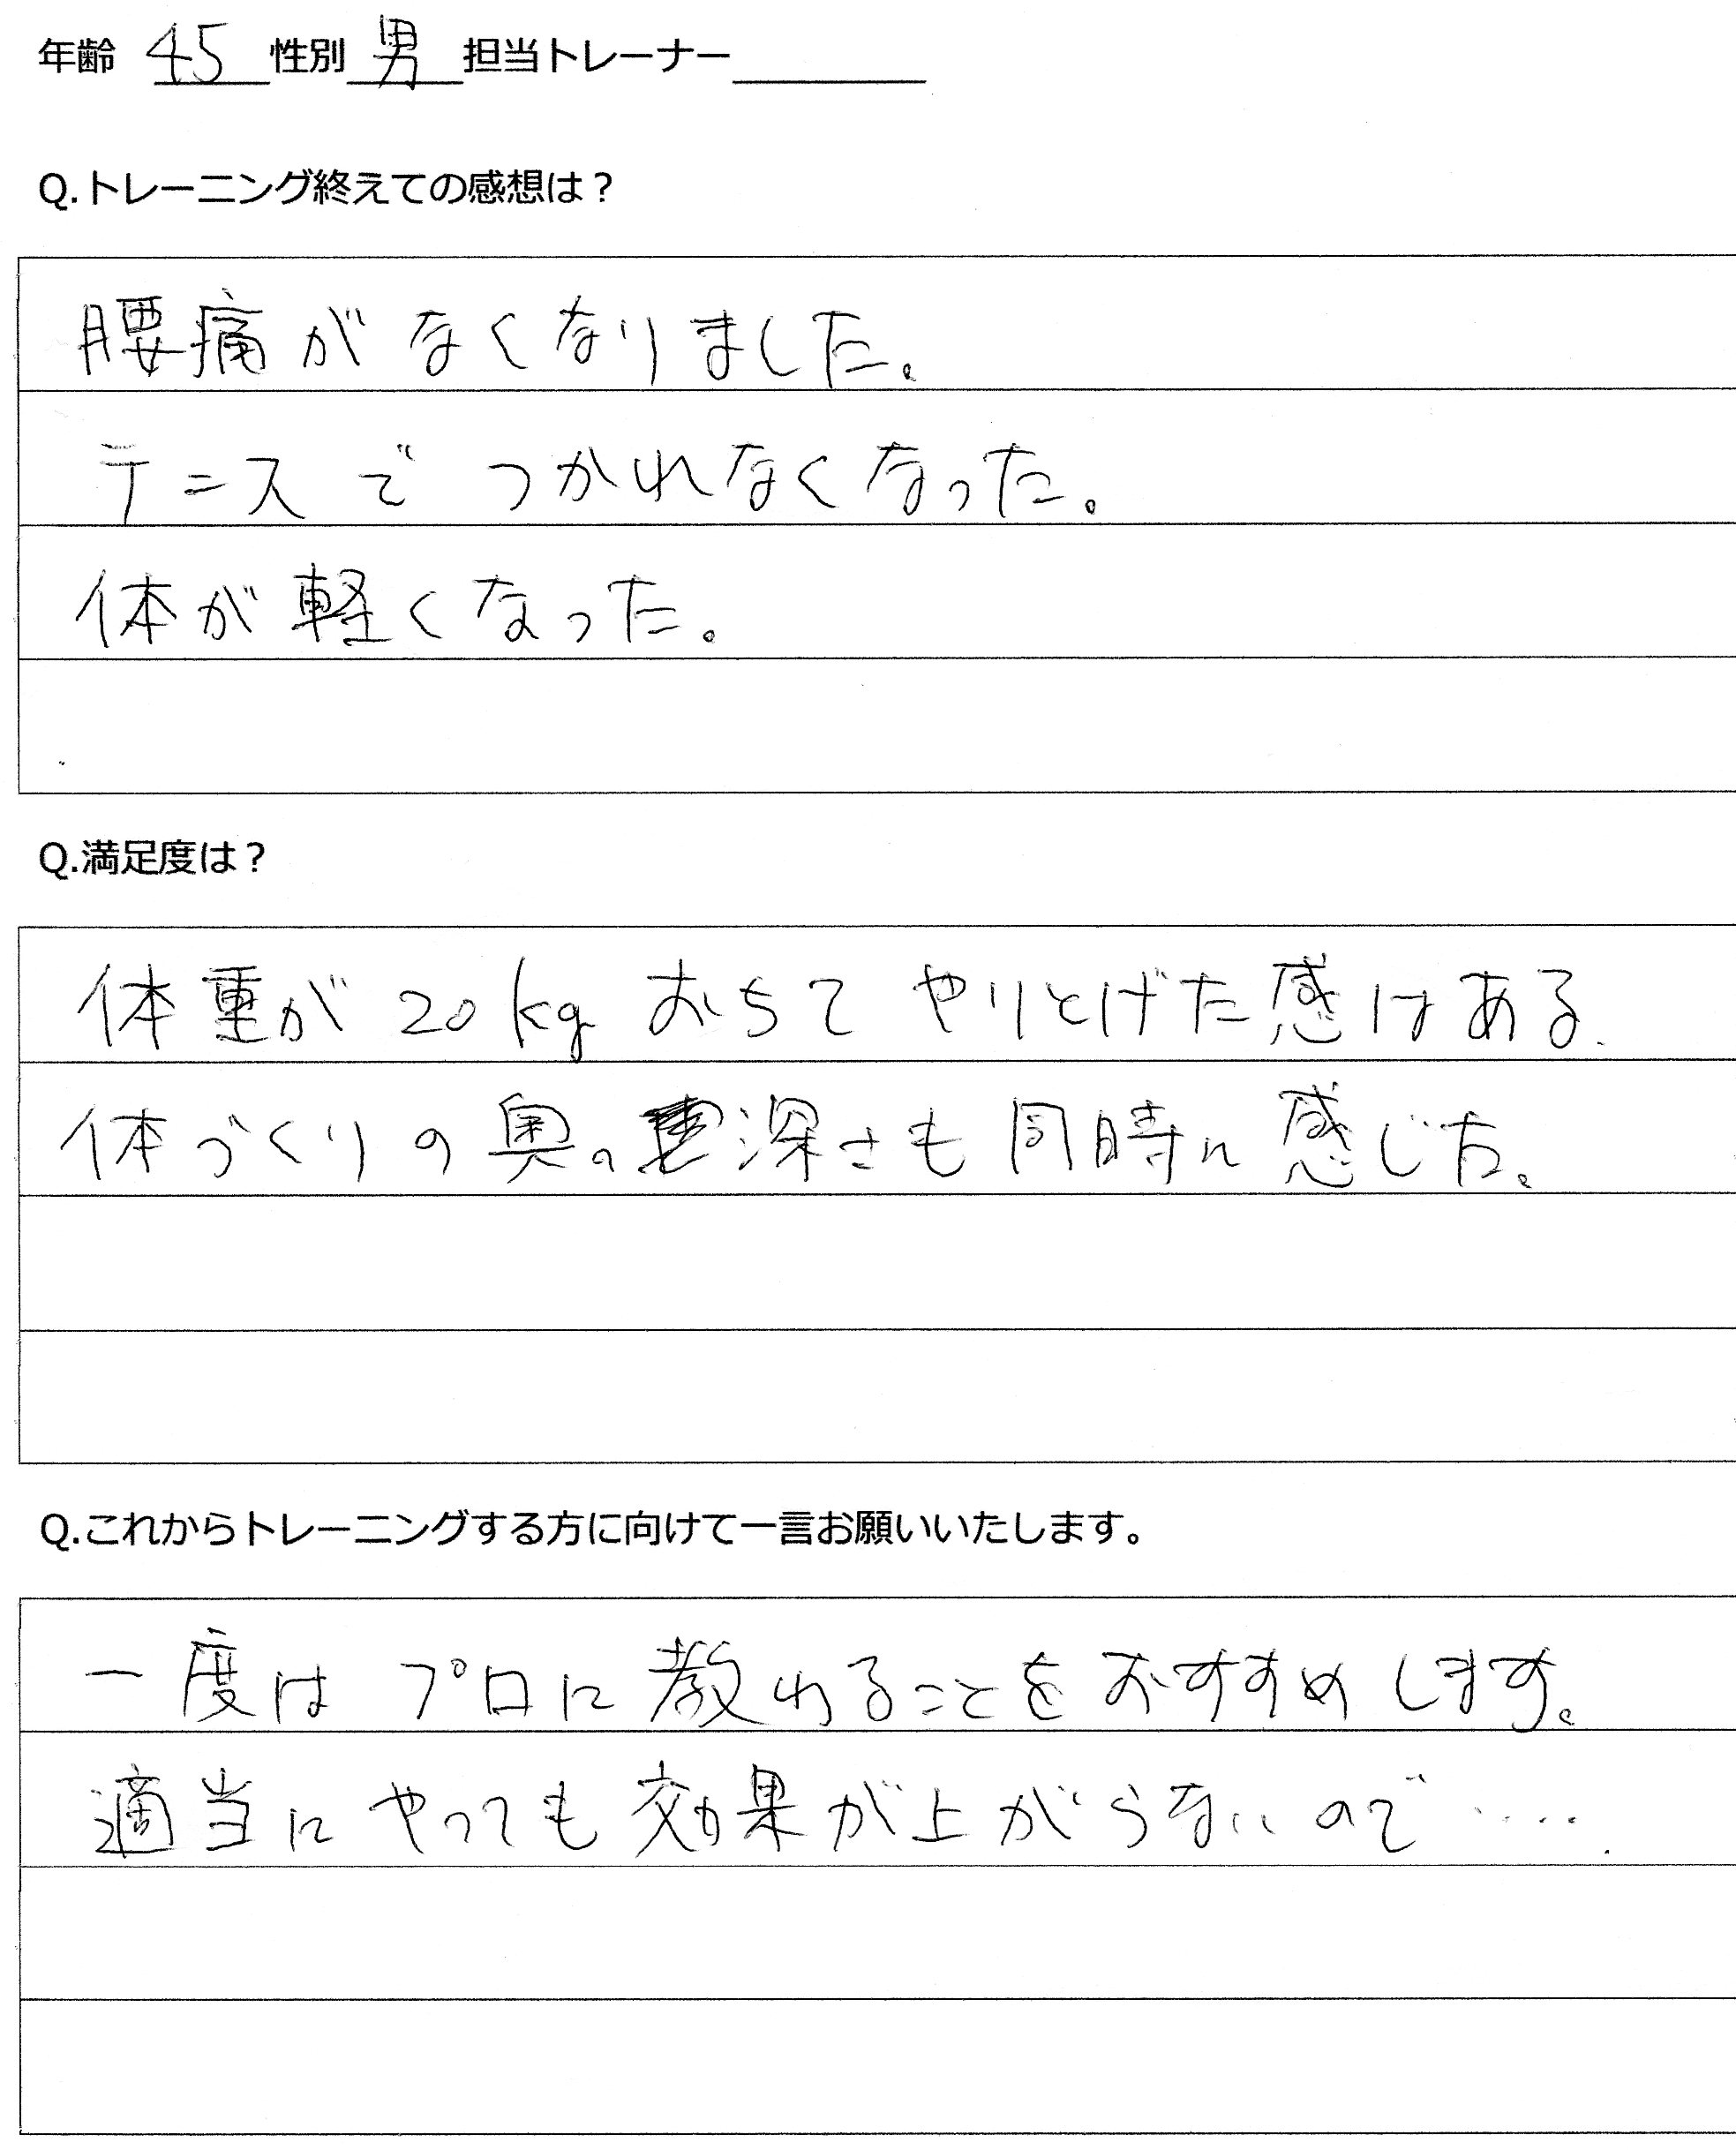 年齢 45 性別 男 担当トレーナー
Q.トレーニング終えての感想は？
腰痛がなくなりました。
テニスでつかれなくなった。
体が軽くなった。
Q.満足度は？
体重が20kgおちてやりとげた感はある.
体づくりの奥の深さも同時に感じた。
Q.これからトレーニングする方に向けて一言お願いいたします。
一度はプロに教わることをおすすめします。
適当にやっても効果が上がらないので・・・・.